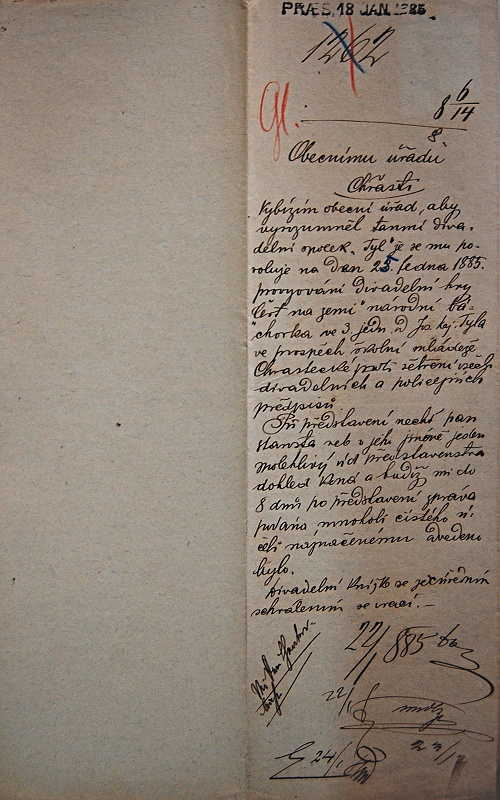 PRÆS. 18 JAN. 1885
1262
Gl.
8 6/14
8
Obecnímu úřadu
Chrásti
Vybízím obecní úřad, aby
vyrozuměl tamní diva-
delní spolek „Tyl" že se mu po-
voluje na den 25. ledna 1885.
provozování divadelní hry
čert na zemi" národní bá-
chorka ve 3. jedn. od Jos. Kaj. Tyla
ve prospěch školní mládeže
Chrastecké proti šetření všech
divadelních a policejních
předpisů.
Při představení nechť pan
starosta neb v jeho jméně jeden
úd představenstva
dohled koná a budiž mi do
8 dnů po představení zpráva
podána mnoholi čistého ú-
čeli naznačenému odvedeno
bylo.
Divadelní knížka se
schválením se vrací. —
22/1 885
22/1
23/1
24/1